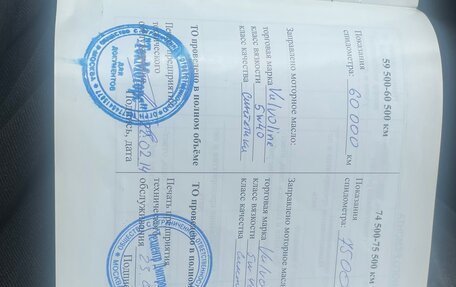 59 500-60 500 км
Показания
спидометра: 60 000 км
Заправлено моторное масло:
торговая марка Valvoline
класс вязкости 5w40
класс качества синтетика
ТО проведено в полном объёме
Печать предприятия
технического
обслуживания
Подпись, дата
ДЛЯ
ДОКУМЕНТОВ
МОСКВА
74 500-75 500 км
Показания
спидометра: 7500
Заправлено моторное масло
торговая марка
класс вязкости 5w
класс качества
ТО проведено в полном объёме
Печать предприятия
технического
обслуживания
Подпись